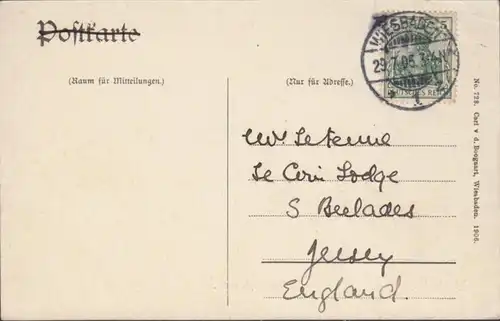 Postkarte
(Raum für Mitteilungen.)
(Nur für Adresse.)
WIESBADEN
29.7.06. 3-4N.
DEUTSCHES REICH
5
Le Coin Lodge
S Beelades
Jersey
England.
No. 722. Carl v d. Boogaart, Wiesbaden. 1906.